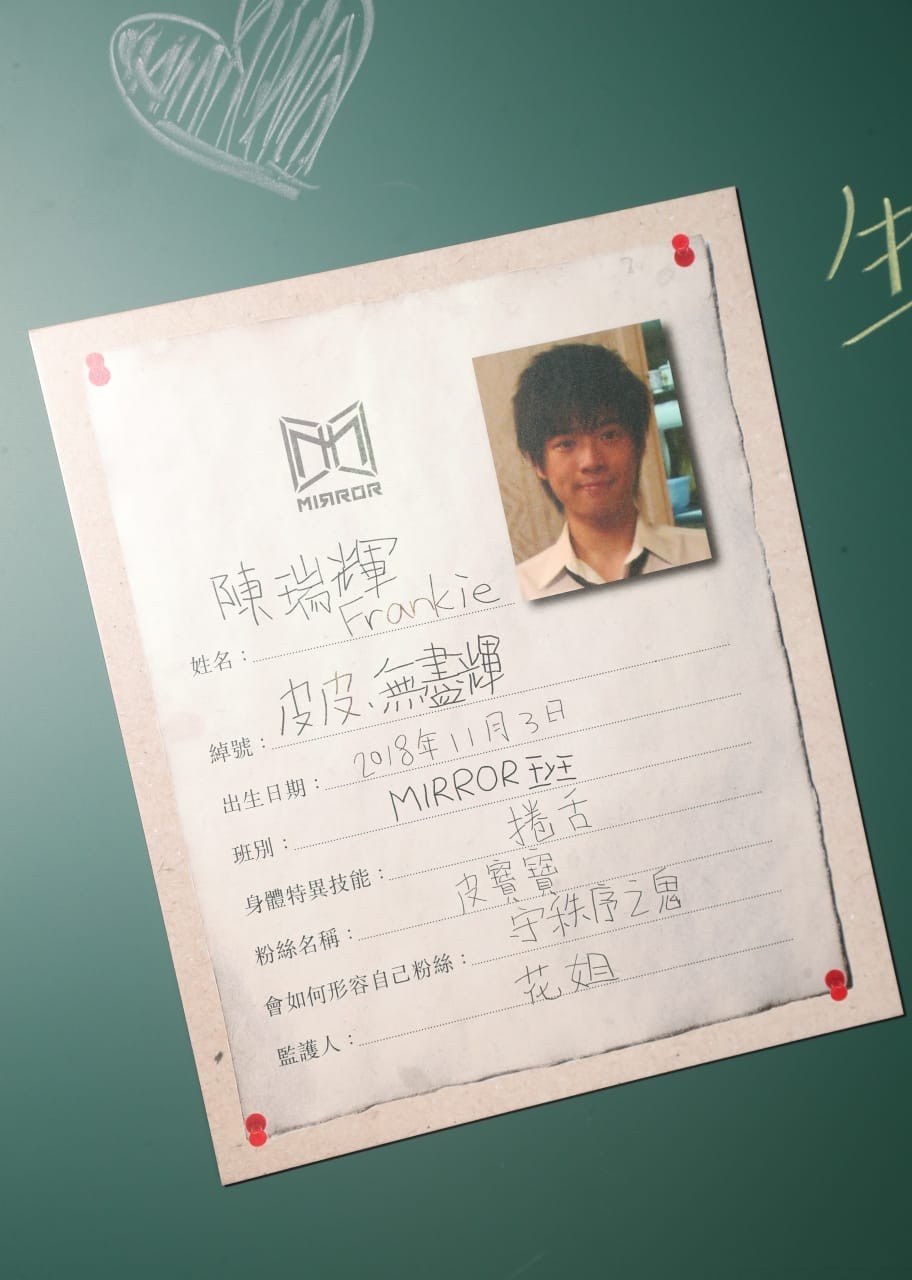 生
MIRROR
陳瑞輝
Frankie
姓名：
綽號：皮皮、無盡輝
出生日期：2018年11月3日
班別：MIRROR班
身體特異技能：捲舌
粉絲名稱：皮寶寶
會如何形容自己粉絲：守秩序之鬼
監護人：花姐